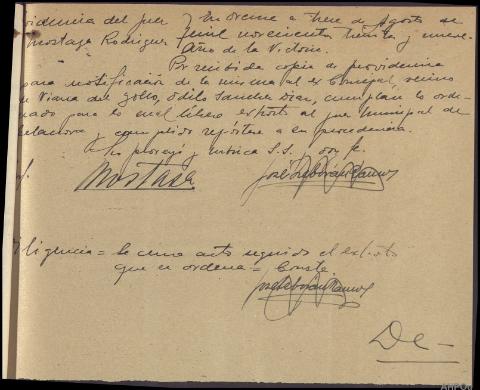 videncia del juez } En Orense a trece de Agosto de
Mostaza Rodriguez } mil novecientos treinta y nueve
Año de la Victoria.
Por recibida copia de providencia
para notificación de la misma al ex Concejal, vecino
Viana del Bollo, Odilo Sanchez Diaz, cumplan lo orde-
nado para lo cual librese exhorto al juez Municipal de
y cumplido repórtese a su procedencia.
Lo proveyó y rubrica S.S. doy fe.
Mostaza
José Ramos
iligencia = Se cumo acto seguido el exhorto
que se ordena = Conste.
José Ramos
De-